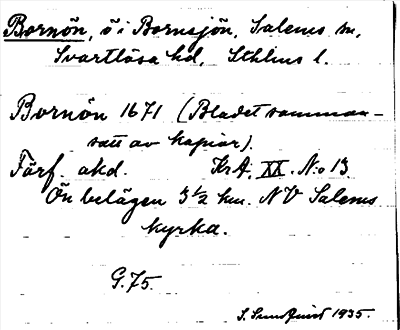 Bornön, ö i Bornsjön, Salems sn,
Svartlösa hd, Sthlms l.
Bornön 1671 (Bladet samman-
satt av kopior).
Förf. okd. KrA. XX. N:o 13
Ön belägen 3 ½ km. NV Salems
kyrka.
G. 75.
S. Sundquist 1935.